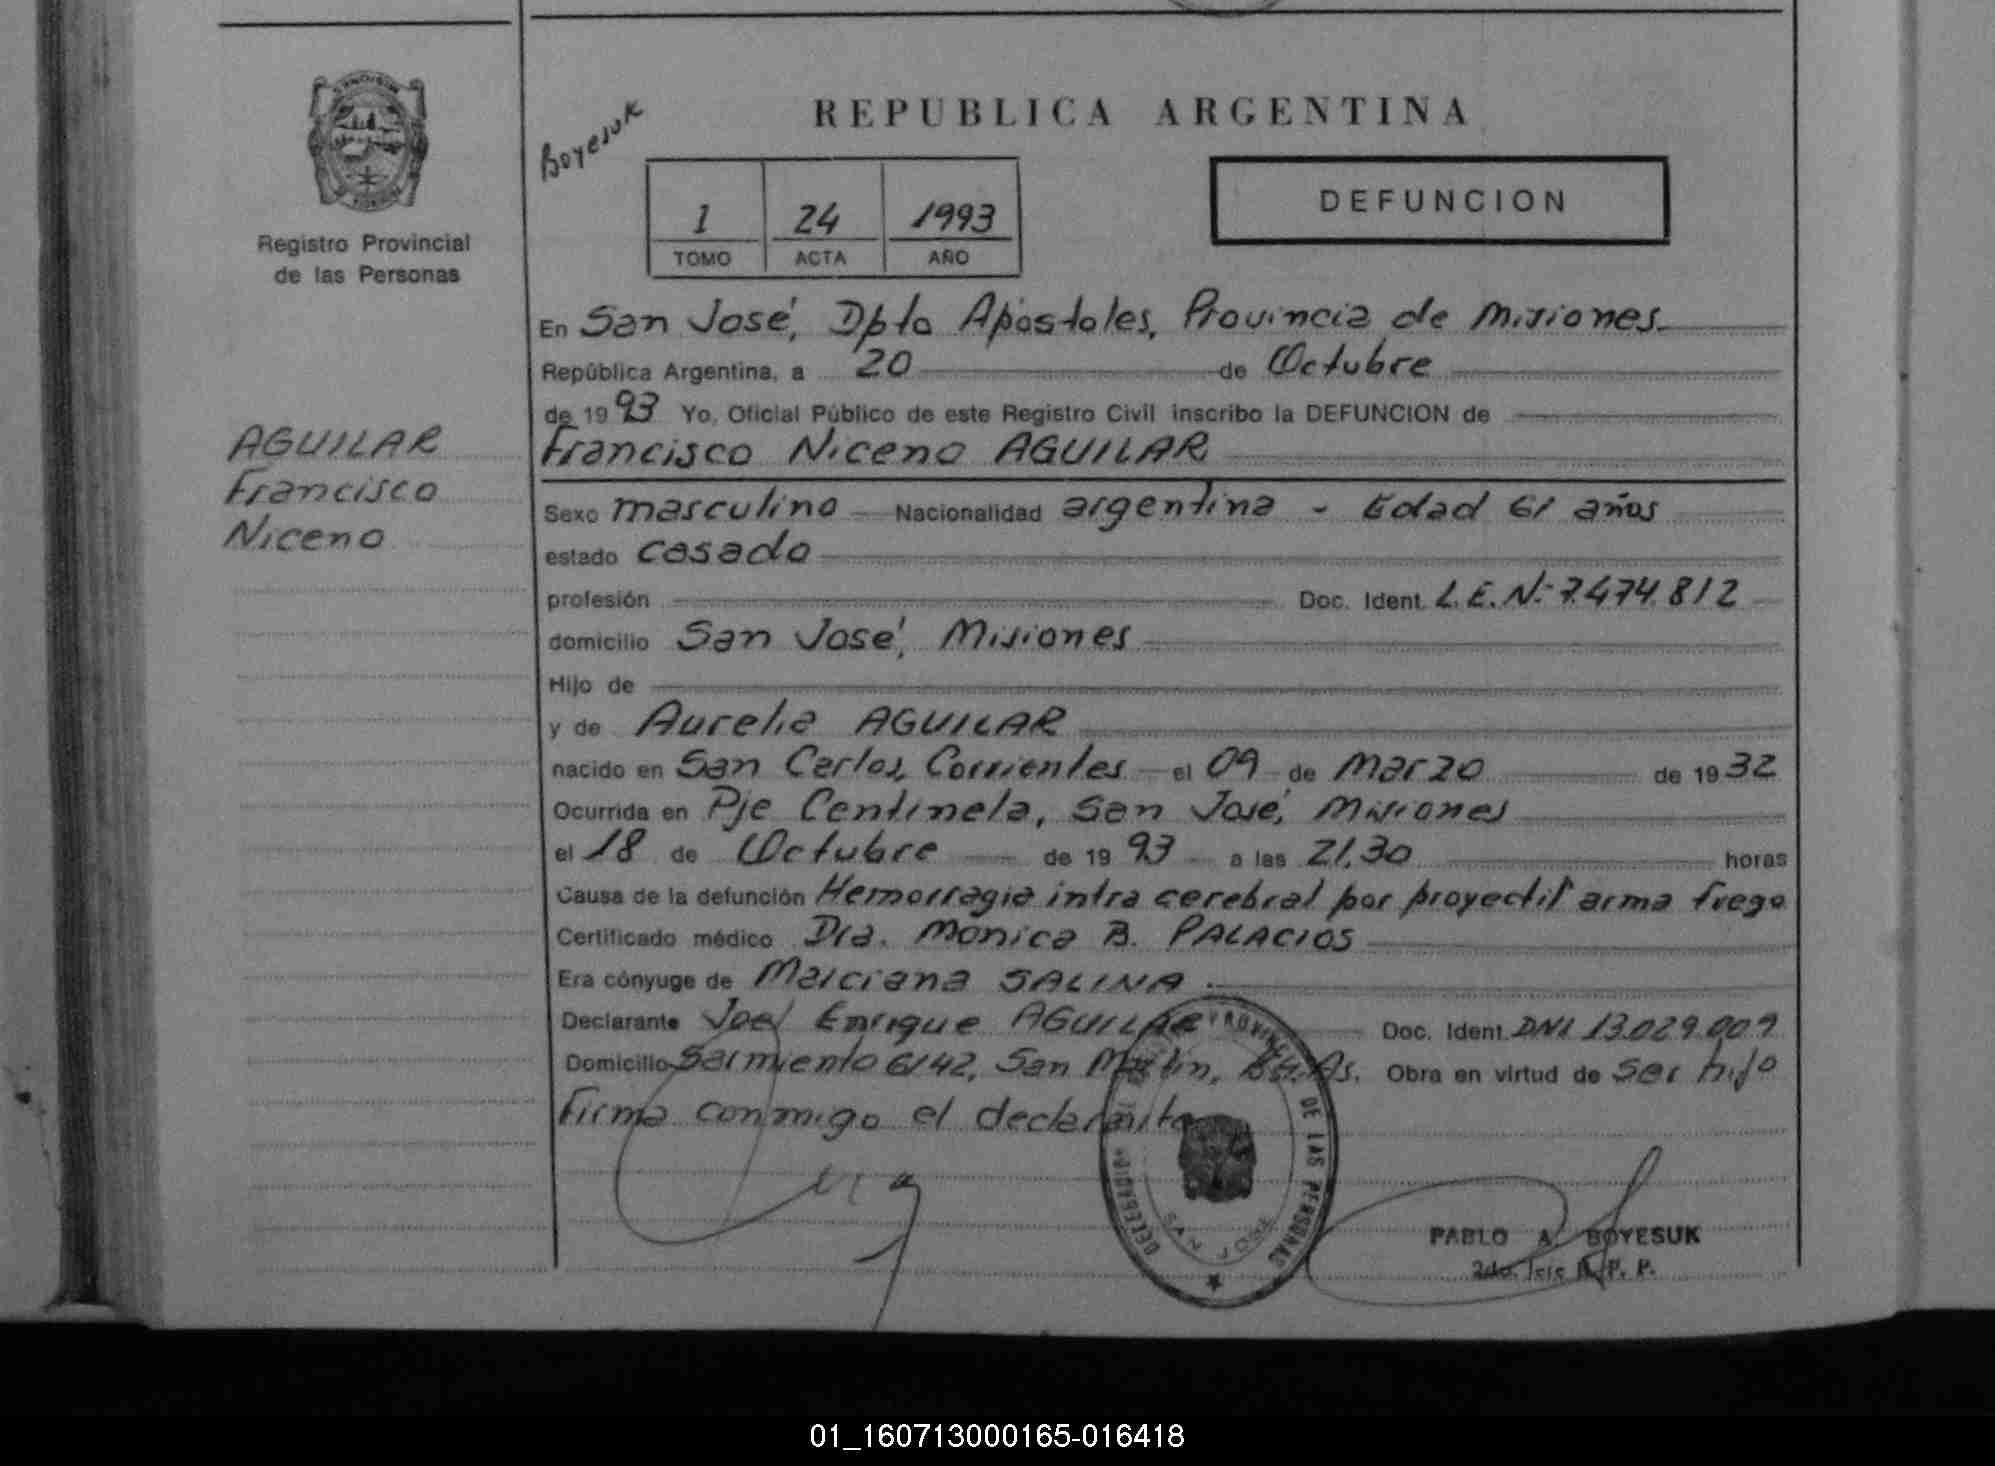 REPUBLICA ARGENTINA
Boyesuk
1 24 1993
TOMO ACTA AÑO
DEFUNCION
Registro Provincial
de las Personas
AGUILAR
Francisco
Niceno
En San José, Dpto Apóstoles, Provincia de Misiones.
República Argentina, a 20 de Octubre
de 1993 Yo, Oficial Público de este Registro Civil inscribo la DEFUNCION de
Francisco Niceno AGUILAR
Sexo masculino Nacionalidad argentina - Edad 61 años
estado casado
profesión Doc. Ident. L.E.Nº 7.474.812
domicilio San José, Misiones
Hijo de
y de Aurelia AGUILAR
nacido en San Carlos, Corrientes el 09 de Marzo de 1932
Ocurrida en Pje Centinela, San José, Misiones
el 18 de Octubre de 1993 a las 21,30 horas
Causa de la defunción Hemorragia intra cerebral por proyectil arma fuego
Certificado médico Dra. Mónica B. PALACIOS
Era cónyuge de Marciana SALINA
Declarante Joel Enrique AGUILAR Doc. Ident. DNI 13.029.009
Domicilio Sarmiento 6142, San Martín, Bs.As. Obra en virtud de ser hijo
Firma conmigo el declarante
PROVINCIAL DE LAS PERSONAS
DELEGACION
SAN JOSE
PABLO A. BOYESUK
2do. Jefe R. P. P.
01_160713000165-016418